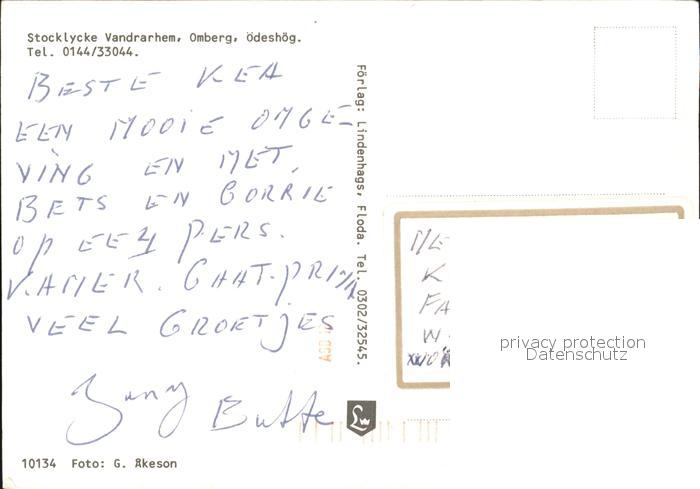 Stocklycke Vandrarhem, Omberg, Ödeshög.
Tel. 0144/33044.
BESTE KEA
EEN MOOIE OMGE-
VING EN MET,
BETS EN CORRIE
OP EEN 4 PERS.
KAMER. GAAT PRIMA
VEEL GROETJES
Förlag: Lindenhags, Floda. Tel. 0302/32545.
ME
K
FA
W
privacy protection
Datenschutz
10134 Foto: G. Åkeson